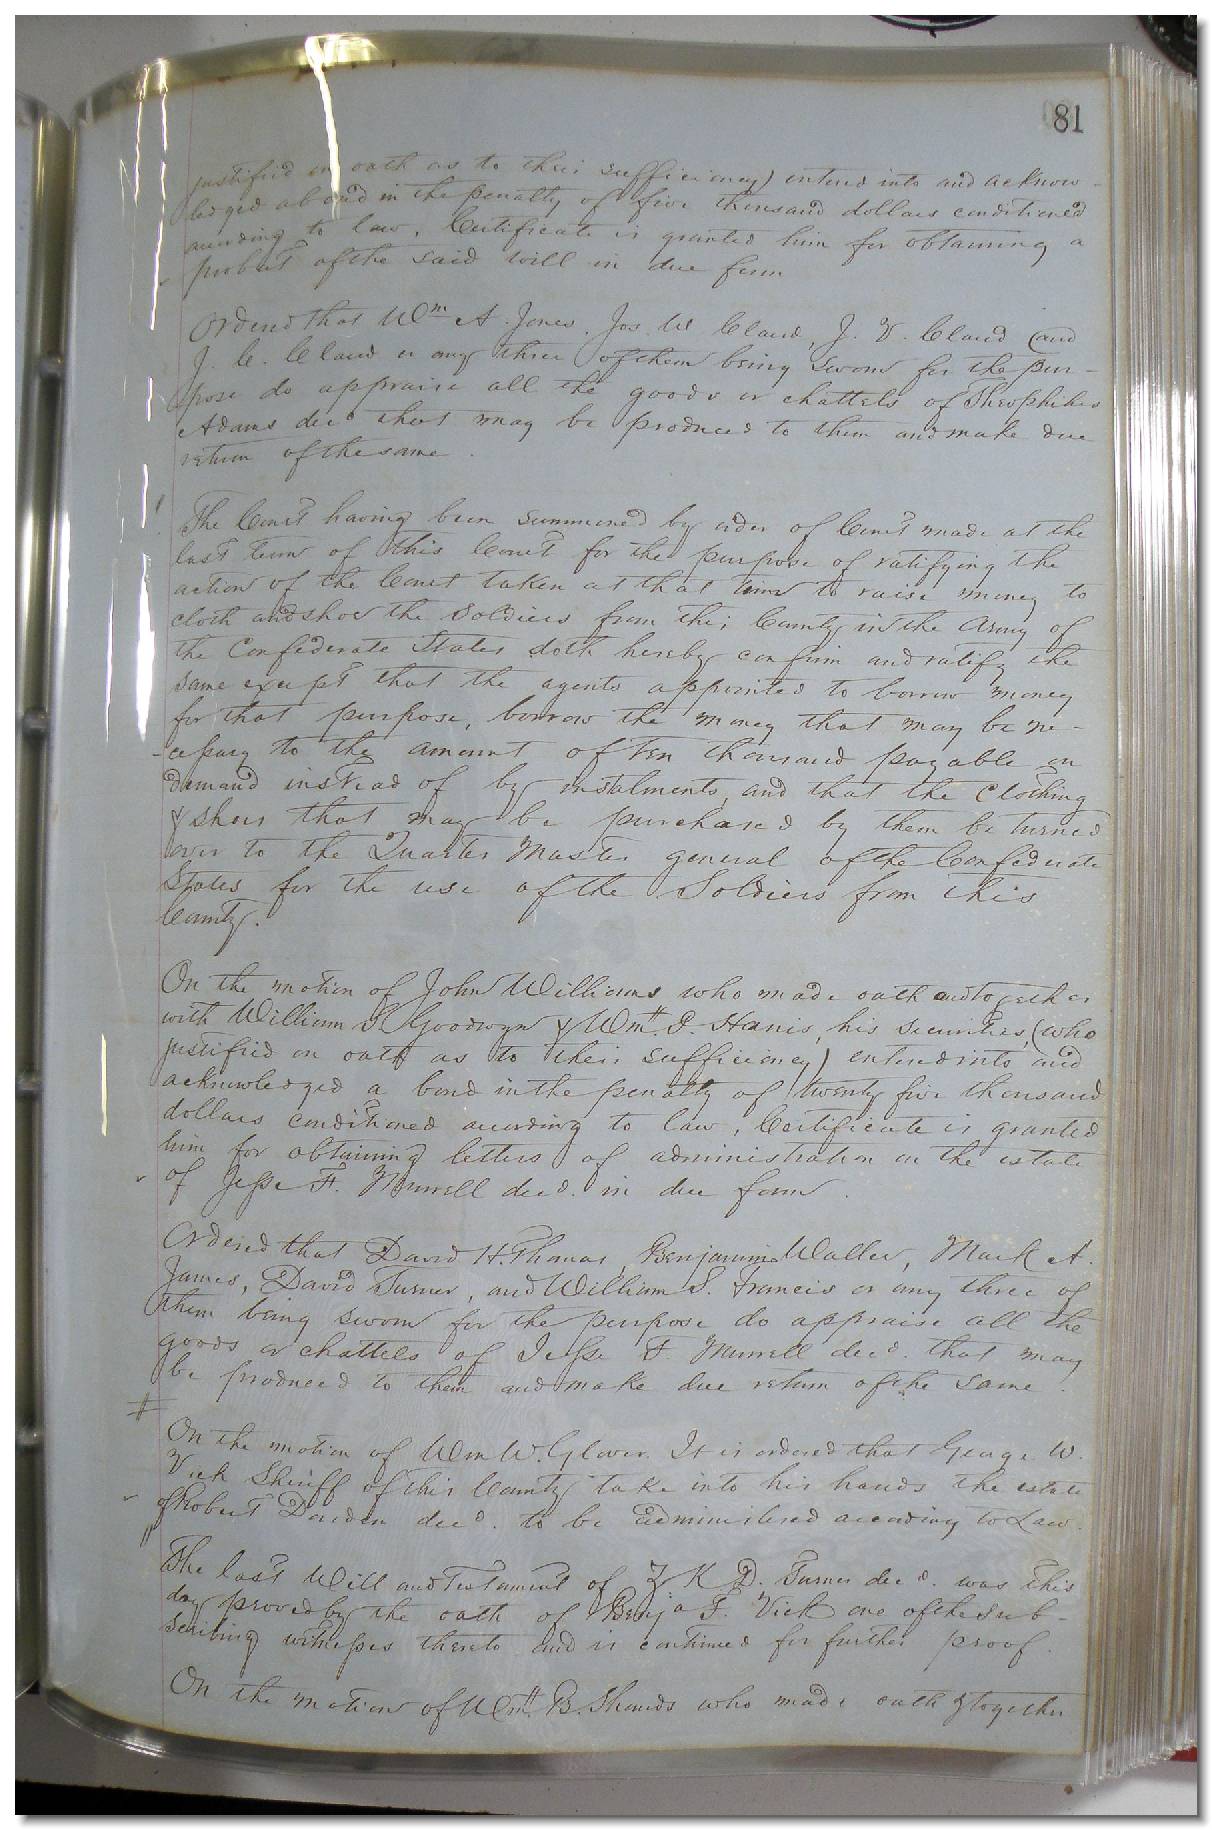 81
justified on oath as to their sufficiency) entered into and acknow-
ledged a bond in the penalty of five thousand dollars conditioned
according to law, Certificate is granted him for obtaining a
probat of the said will in due form
Ordered that Wm A. Jones, Jos. W. Claud, J. V. Claud and
J. C. Claud or any three of them being sworn for the pur-
pose do appraise all the goods or chattels of Theophilus
Adams decd that may be produced to them and make due
return of the same.
The Court having been summoned by order of Court made at the
last term of this Court for the purpose of ratifying the
action of the Court taken at that time to raise money to
cloth and shoe the Soldiers from this County in the Army of
the Confederate States doth hereby confirm and ratify the
same except that the agents appointed to borrow money
for that purpose, borrow the money that may be ne-
-cessary to the amount of Ten thousand payable on
demand instead of by instalments, and that the clothing
& shoes that may be purchased by them be turned
over to the Quarter Master general of the Confederate
States for the use of the Soldiers from this
County.
On the motion of John Williams who made oath and together
with William S. Goodwyn & Wm. J. Harris, his securities, (who
justified on oath as to their sufficiency) entered into and
acknowledged a bond in the penalty of twenty five thousand
dollars conditioned according to law, Certificate is granted
him for obtaining letters of administration on the estate
of Jesse F. Murrell decd. in due form.
Ordered that David H. Thomas, Benjamin Waller, Mark A.
James, David Turner, and William S. Francis or any three of
them being sworn for the purpose do appraise all the
goods or chattels of Jesse F. Murrell decd. that may
be produced to them and make due return of the same.
On the motion of Wm W. Glover. It is ordered that George W.
Vick Sheriff of this County take into his hands the estate
of Robert Darden decd. to be administered according to Law.
The last Will and Testament of Z K D. Turner decd. was this
day proved by the oath of Benja F. Vick one of the sub-
scribing witnesses thereto and is continued for further proof
On the motion of Wm. B. Shands who made oath & together